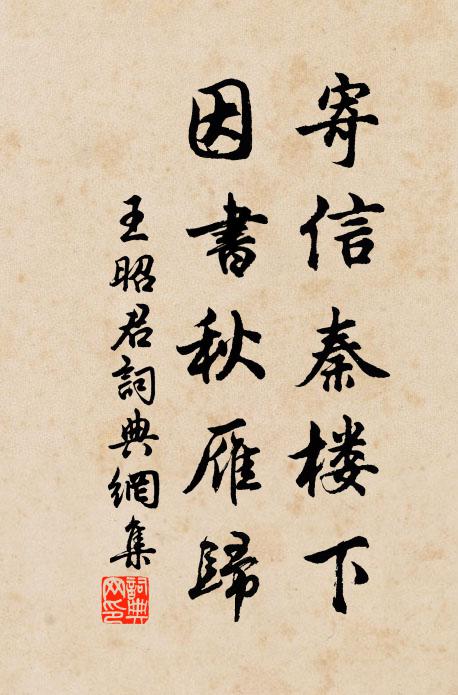 寄信秦楼下
因書秋雁歸
王昭君詞典網集
詞典網印